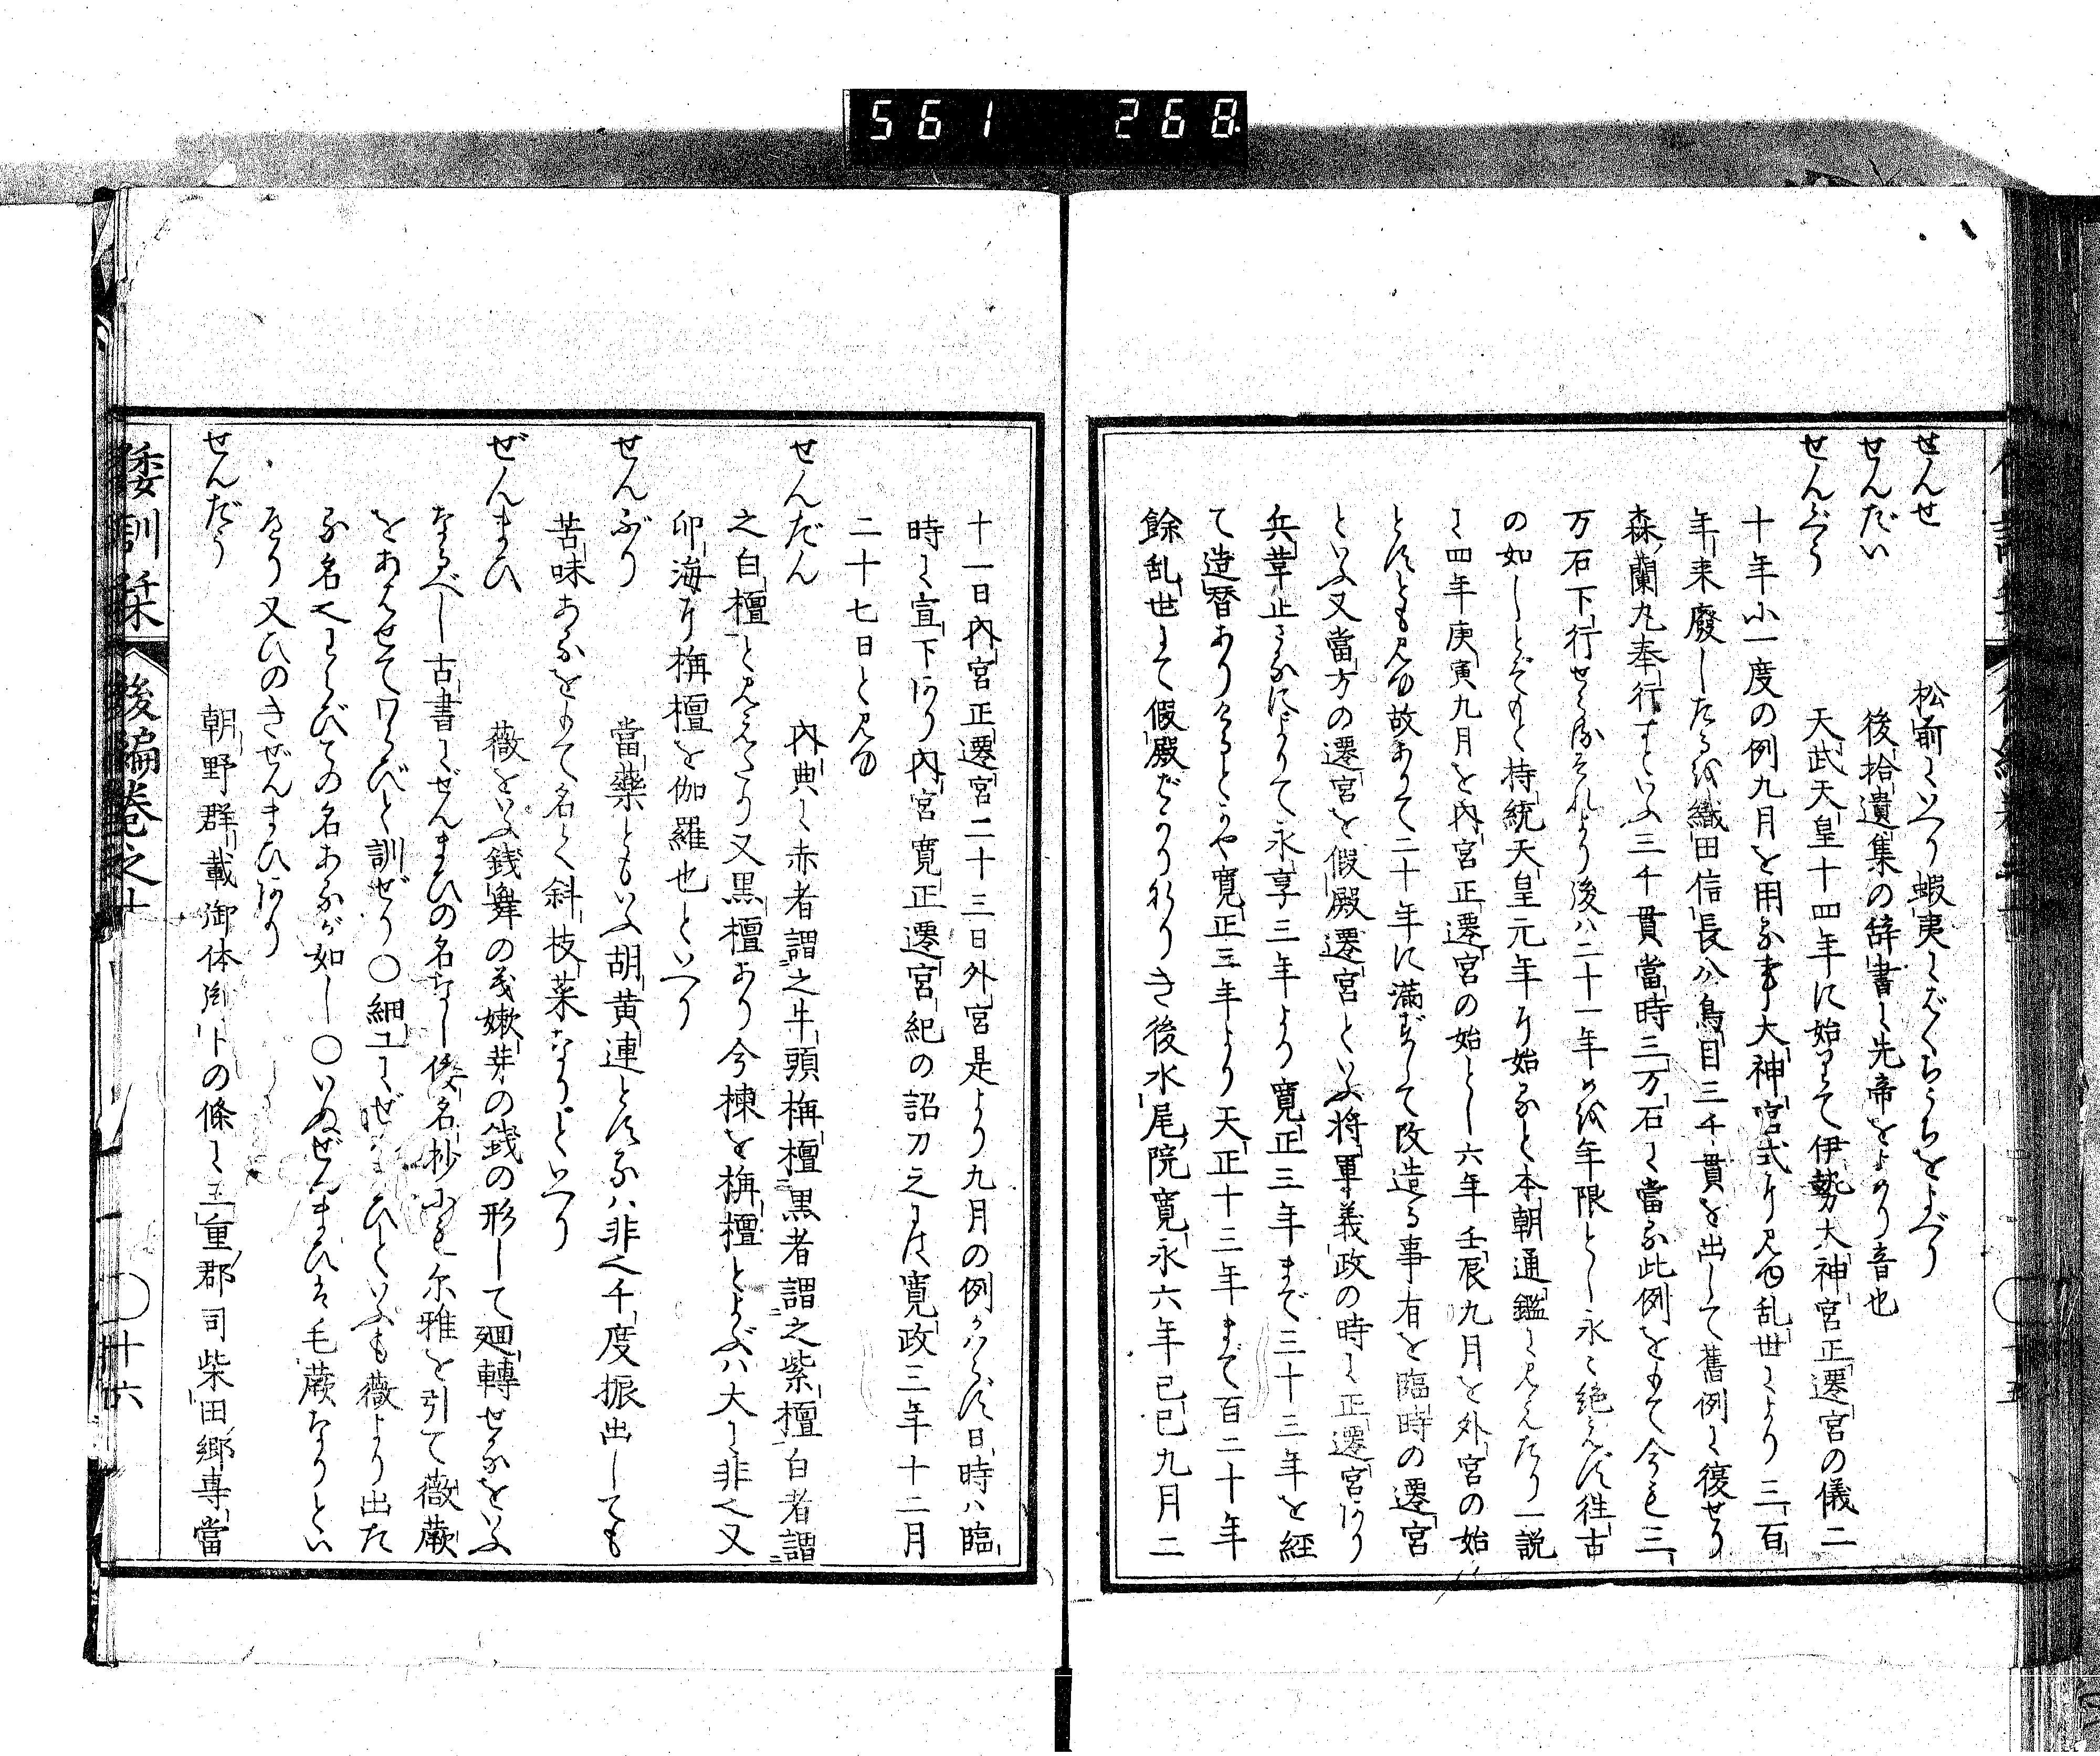 561 268
せんせ 松前にいへり蝦夷にばくちうちをよべり
せんだい 後拾遺集の辞書に先帝をよめり音也
せんぐう 天武天皇十四年に始りて伊勢大神宮正遷宮の儀二
十年に一度の例九月を用る事大神宮式に見ゆ乱世により三百
年来廢したるを織田信長公鳥目三千貫を出して舊例に復せり
森蘭丸奉行すといふ三千貫當時三万石に當る此例をもて今も三
万石下行せらるそれより後ハ二十一年めを年限とし永く絶えず徃古
の如しとぞもと持統天皇元年に始ると本朝通鑑に見えたり一説
に四年庚寅九月を内宮正遷宮の始とし六年壬辰九月を外宮の始
とすとも見ゆ故ありて二十年に満ずして改造る事有を臨時の遷宮
といふ又當方の遷宮を假殿遷宮といふ将軍義政の時に正遷宮あり
兵革止ざるによりて永享三年より寛正三年まで三十三年を経
て造替ありけるとかや寛正三年より天正十三年まで百二十年
餘乱世にて假殿ばかりなりき後水尾院寛永六年己巳九月二
十一日内宮正遷宮二十三日外宮是より九月の例かハらず日時ハ臨
時に宣下あり内宮寛正遷宮紀の詔刀之には寛政三年十二月
二十七日と見ゆ
せんだん 内典に赤者謂之牛頭栴檀黒者謂之紫檀白者謂
之白檀と見えたり又黒檀あり今楝を栴檀とよぶハ大に非也又
卯海に栴檀を伽羅也といへり
せんぶり 當藥ともいふ胡黄連とするハ非也千度振出しても
苦味あるをもて名く斜枝菜なりといへり
ぜんまひ 薇をいふ銭舞の義嫩芽の銭の形して廻轉せるをいふ
なるべし古書にぜんまひの名なし倭名抄にも尓雅を引て薇蕨
をあはせてワらびと訓ぜり〇細工にぜんまひといふも薇より出た
る名也わらびての名あるが如し〇いぬぜんまひは毛蕨なりとい
へり又ひのきぜんまひあり
せんだう 朝野群載御体御卜の條に三重郡司柴田郷専當
倭訓栞 後編巻之十 〇十六